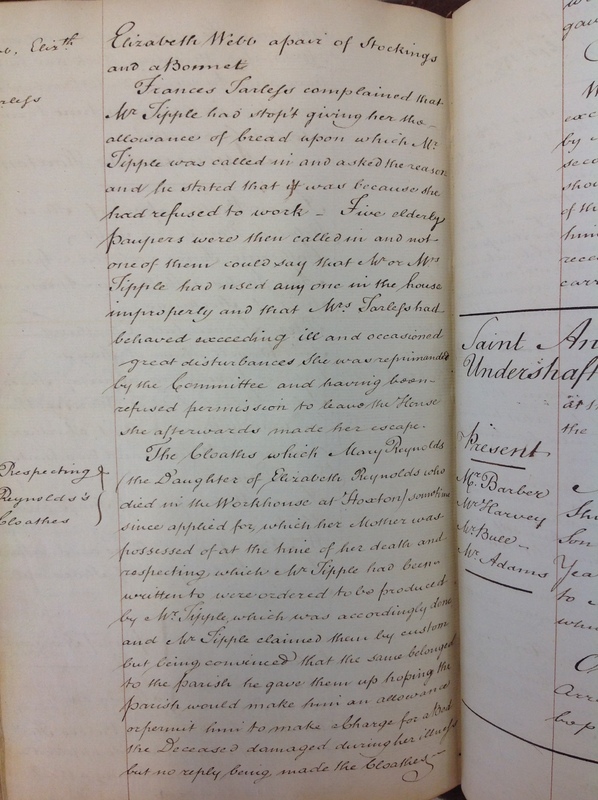 b, Eliz.th
Elizabeth Webb a pair of Stockings
and a Bonnet
Frances Tarless complained that
Mr Tipple had stop't giving her the
allowance of bread upon which Mr
Tipple was called in and asked the reason
and he stated that it was because she
had refused to work – Five elderly
paupers were then called in and not
one of them could say that Mr or Mrs
Tipple had used any one in the house
improperly and that Mrs Tarless had
behaved exceeding ill and occasioned
great disturbances She was reprimanded
by the Committee and having been
refused permission to leave the House
she afterwards made her escape.
Respecting
Reynolds's
Cloathes
The Cloaths which Mary Reynolds
(the Daughter of Elizabeth Reynolds who
died in the Workhouse at Hoxton) sometime
since applied for, which her Mother was
possessed of at the time of her death and
respecting which Mr Tipple had been
written to were ordered to be produced
by Mr Tipple, which was accordingly done
and Mr Tipple claimed them by custom
but being convinced that the same belonged
to the parish he gave them up hoping the
parish would make him an allowance
or permit him to make a Charge for a Bed
the Deceased damaged during her illness
but no reply being made the Cloathes
Saint An
Undershaft
at th
the
Present
Mr Barber
Mr Harvey
Mr Bull
Mr Adams
She
Son
Yea
to
whi